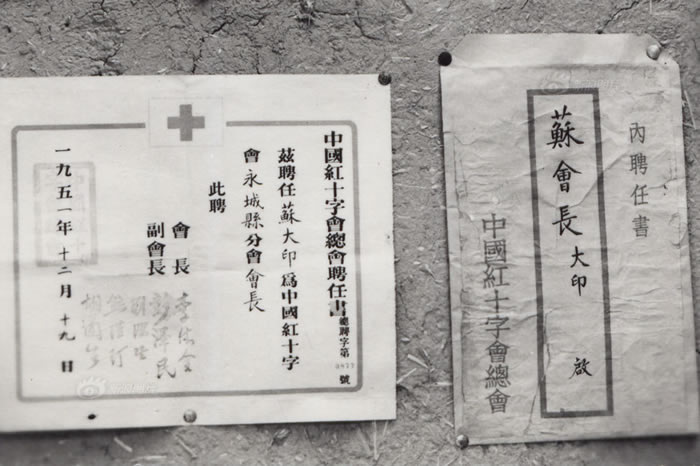 中國紅十字會總會聘任書
總聘字第
號
茲聘任蘇大印爲中國紅十字
會永城縣分會會長
此聘
會長
李德全
副會長
彭澤民
一九五一年十二月十九日
內聘任書
蘇會長大印 啟
中國紅十字會總會